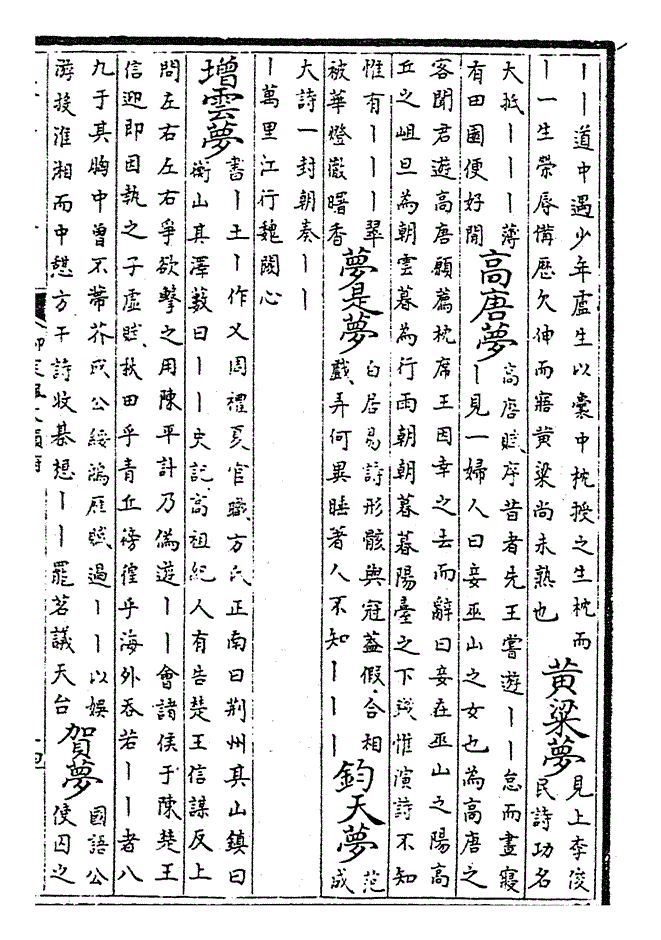 ｜｜道中遇少年盧生以囊中枕授之生枕而
｜一生榮辱備歷欠伸而寤黃粱尚未熟也
黃粱夢
見上李俊
民詩功名
大抵｜｜｜薄
有田園便好閒
高唐夢
高唐賦序昔者先王嘗遊｜｜怠而晝寢
｜見一婦人曰妾巫山之女也為高唐之
客聞君遊高唐願薦枕席王因幸之去而辭曰妾在巫山之陽高
丘之岨旦為朝雲暮為行雨朝朝暮暮陽臺之下錢惟演詩不知
惟有｜｜｜翠
被華燈徹曙香
夢是夢
白居易詩形骸與冠蓋假合相
戲弄何異睡著人不知｜｜｜
鈞天夢
范
成
大詩一封朝奏｜｜
｜萬里江行魏闕心
增雲夢
書｜土｜作乂周禮夏官職方氏正南曰荆州其山鎮曰
衡山其澤藪曰｜｜史記高祖紀人有告楚王信謀反上
問左右左右爭欲擊之用陳平計乃偽遊｜｜會諸侯于陳楚王
信迎即因執之子虛賦秋田乎青丘徬徨乎海外吞若｜｜者八
九于其胸中曾不蔕芥成公綏鴻雁賦過｜｜以娛
游投淮湘而中憇方干詩收碁想｜｜罷茗議天台
賀夢
國語公
使囚之